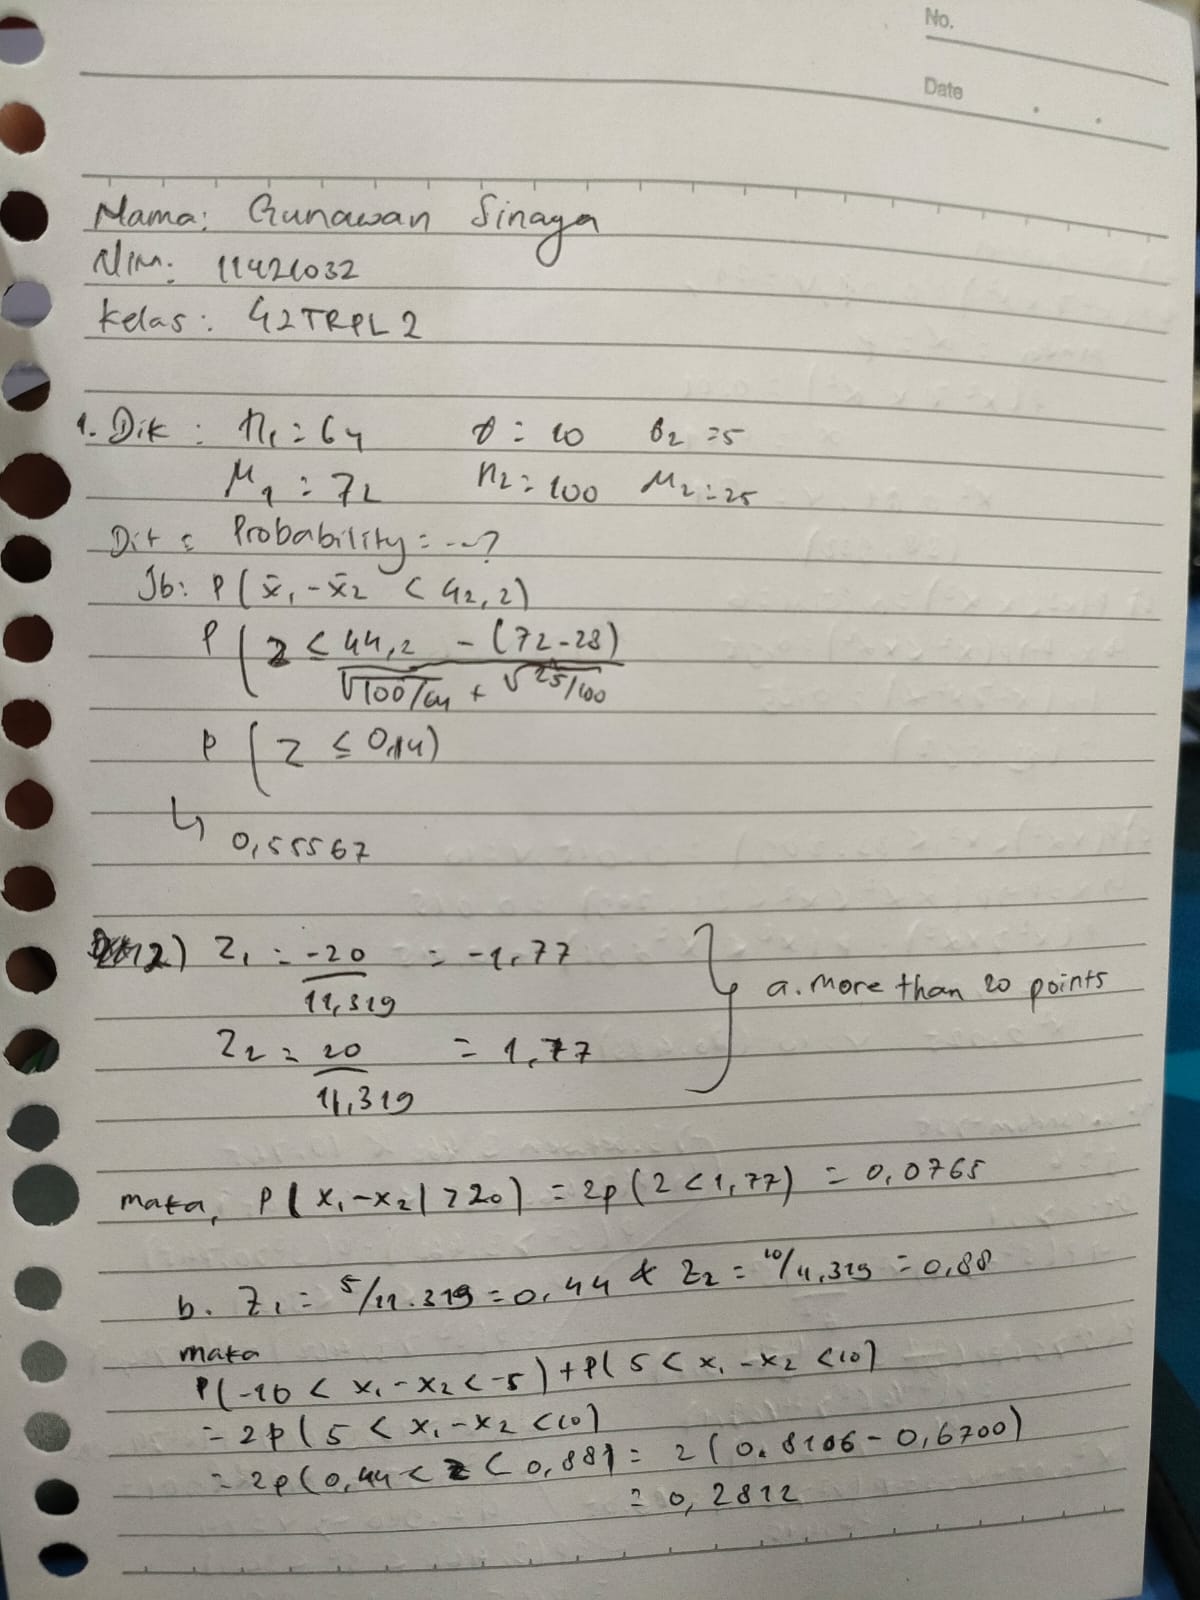 No.
Date
Nama: Gunawan Sinaga
Nim: 11421032
Kelas: 42TRPL 2
1. Dik: n₁ = 64 σ = 10 σ₂ = 5
μ₁ = 72 n₂ = 100 μ₂ = 25
Dit: Probability = ...?
Jb: P(x̄₁ - x̄₂ < 42,2)
P(z ≤ 44,2 - (72-28) / √100/64 + √25/100
P(z ≤ 0,14)
↳ 0,55567
2) Z₁ = -20/11,319 = -1,77
a. more than 20 points
Z₂ = 20/11,319 = 1,77
maka, P(x₁-x₂| > 20) = 2p(z < 1,77) = 0,0765
b. Z₁ = 5/11.319 = 0,44 & Z₂ = 10/11,319 = 0,88
maka
P(-10 < x₁ - x₂ < -5) + P(5 < x₁ - x₂ < 10)
= 2p(5 < x₁ - x₂ < 10)
= 2p(0,44 < z < 0,88) = 2(0.8106 - 0,6700)
= 0,2812